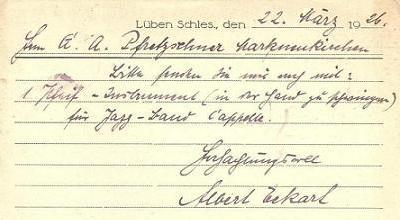 Lüben Schles., den 22. März 1926.
Herrn A. A. Pfretzschner Markneukirchen
Bitte senden Sie mir noch mit:
1 Pfeif-Instrument (in der Hand zu schwingen)
für Jazz-Band Cappelle.
Hochachtungsvoll
Albert Eckart